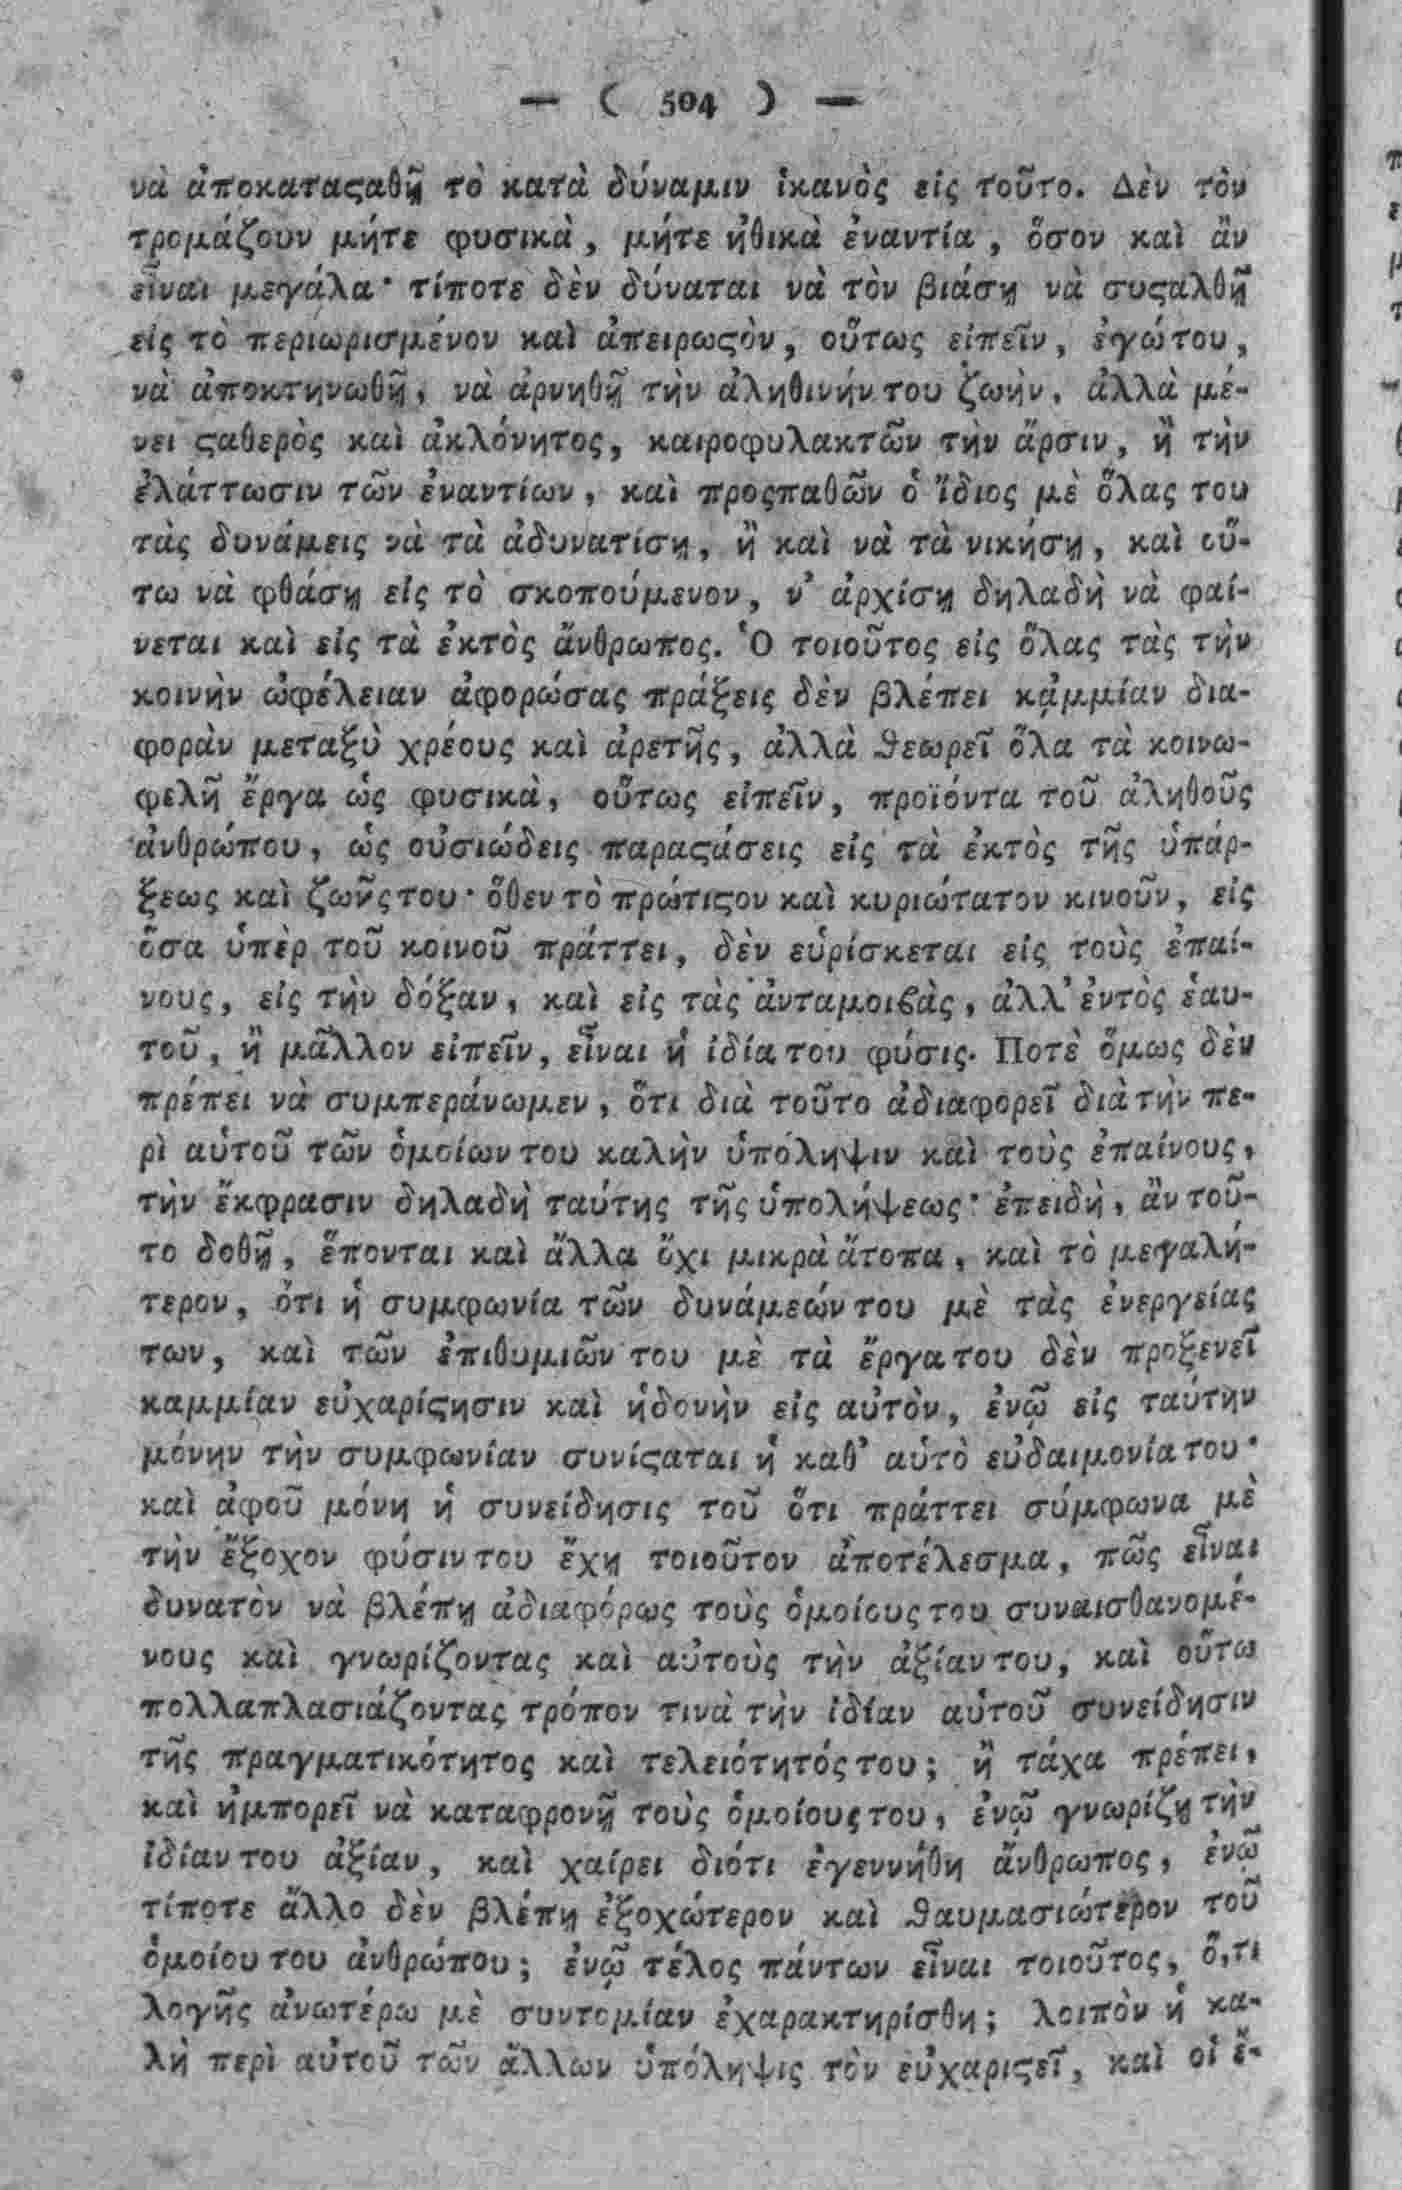 — ( 504 ) —
νὰ ἀποκαταϛαθῇ τὸ κατὰ δύναμιν ἱκανὸς εἰς τοῦτο. Δὲν τὸν
τρομάζουν μήτε φυσικὰ, μήτε ἠθικὰ ἐναντία, ὅσον καὶ ἂν
εἶναι μεγάλα· τίποτε δὲν δύναται νὰ τὸν βιάσῃ νὰ συϛαλθῇ
εἰς τὸ περιωρισμένον καὶ ἀπειρωϛὸν, οὕτως εἰπεῖν, ἐγώτου,
νὰ ἀποκτηνωθῇ, νὰ ἀρνηθῇ τὴν ἀληθινήν του ζωὴν, ἀλλὰ μέ-
νει ϛαθερὸς καὶ ἀκλόνητος, καιροφυλακτῶν τὴν ἄρσιν, ἢ τὴν
ἐλάττωσιν τῶν ἐναντίων, καὶ προςπαθῶν ὁ ἴδιος μὲ ὅλας του
τὰς δυνάμεις νὰ τὰ ἀδυνατίσῃ, ἢ καὶ νὰ τὰ νικήσῃ, καὶ οὕ-
τω νὰ φθάσῃ εἰς τὸ σκοπούμενον, ν’ ἀρχίσῃ δηλαδὴ νὰ φαί-
νεται καὶ εἰς τὰ ἐκτὸς ἄνθρωπος. Ὁ τοιοῦτος εἰς ὅλας τὰς τὴν
κοινὴν ὠφέλειαν ἀφορώσας πράξεις δὲν βλέπει κᾀμμίαν δια-
φορὰν μεταξὺ χρέους καὶ ἀρετῆς, ἀλλὰ ϑεωρεῖ ὅλα τὰ κοινω-
φελῆ ἔργα ὡς φυσικὰ, οὕτως εἰπεῖν, προϊόντα τοῦ ἀληθοῦς
ἀνθρώπου, ὡς οὐσιώδεις παραϛάσεις εἰς τὰ ἐκτὸς τῆς ὑπάρ-
ξεως καὶ ζωῆςτου· ὅθεν τὸ πρώτιϛον καὶ κυριώτατον κινοῦν, εἰς
ὅσα ὑπὲρ τοῦ κοινοῦ πράττει, δὲν εὑρίσκεται εἰς τοὺς ἐπαί-
νους, εἰς τὴν δόξαν, καὶ εἰς τὰς ἀνταμοιϐὰς, ἀλλ’ ἐντὸς ἑαυ-
τοῦ, ἢ μᾶλλον εἰπεῖν, εἶναι ἡ ἰδία του φύσις. Ποτὲ ὅμως δὲν
πρέπει νὰ συμπεράνωμεν, ὅτι διὰ τοῦτο ἀδιαφορεῖ διὰ τὴν πε-
ρὶ αὑτοῦ τῶν ὁμοίων του καλὴν ὑπόληψιν καὶ τοὺς ἐπαίνους,
τὴν ἔκφρασιν δηλαδὴ ταύτης τῆς ὑπολήψεως· ἐπειδὴ, ἂν τοῦ-
το δοθῇ, ἕπονται καὶ ἄλλα ὄχι μικρὰ ἄτοπα, καὶ τὸ μεγαλή-
τερον, ὅτι ἡ συμφωνία τῶν δυνάμεών του μὲ τὰς ἐνεργείας
των, καὶ τῶν ἐπιθυμιῶν του μὲ τὰ ἔργα του δὲν προξενεῖ
καμμίαν εὐχαρίϛησιν καὶ ἡδονὴν εἰς αὐτὸν, ἐνῷ εἰς ταύτην
μόνην τὴν συμφωνίαν συνίϛαται ἡ καθ’ αὑτὸ εὐδαιμονία του·
καὶ ἀφοῦ μόνη ἡ συνείδησις τοῦ ὅτι πράττει σύμφωνα μὲ
τὴν ἔξοχον φύσιν του ἔχῃ τοιοῦτον ἀποτέλεσμα, πῶς εἶναι
δυνατὸν νὰ βλέπῃ ἀδιαφόρως τοὺς ὁμοίους του συναισθανομέ-
νους καὶ γνωρίζοντας καὶ αὐτοὺς τὴν ἀξίαν του, καὶ οὕτω
πολλαπλασιάζοντας τρόπον τινὰ τὴν ἰδίαν αὑτοῦ συνείδησιν
τῆς πραγματικότητος καὶ τελειότητός του; ἢ τάχα πρέπει,
καὶ ἠμπορεῖ νὰ καταφρονῇ τοὺς ὁμοίους του, ἐνῷ γνωρίζῃ τὴν
ἰδίαν του ἀξίαν, καὶ χαίρει διότι ἐγεννήθη ἄνθρωπος, ἐνῷ
τίποτε ἄλλο δὲν βλέπῃ ἐξοχώτερον καὶ ϑαυμασιώτερον τοῦ
ὁμοίου του ἀνθρώπου; ἐνῷ τέλος πάντων εἶναι τοιοῦτος, ὅ,τι
λογῆς ἀνωτέρω μὲ συντομίαν ἐχαρακτηρίσθη; λοιπὸν ἡ κα-
λὴ περὶ αὐτοῦ τῶν ἄλλων ὑπόληψις τὸν εὐχαριϛεῖ, καὶ οἱ ἔ-